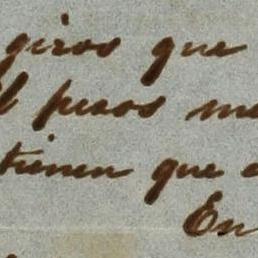 giros que
l pesos me
tienen que
En